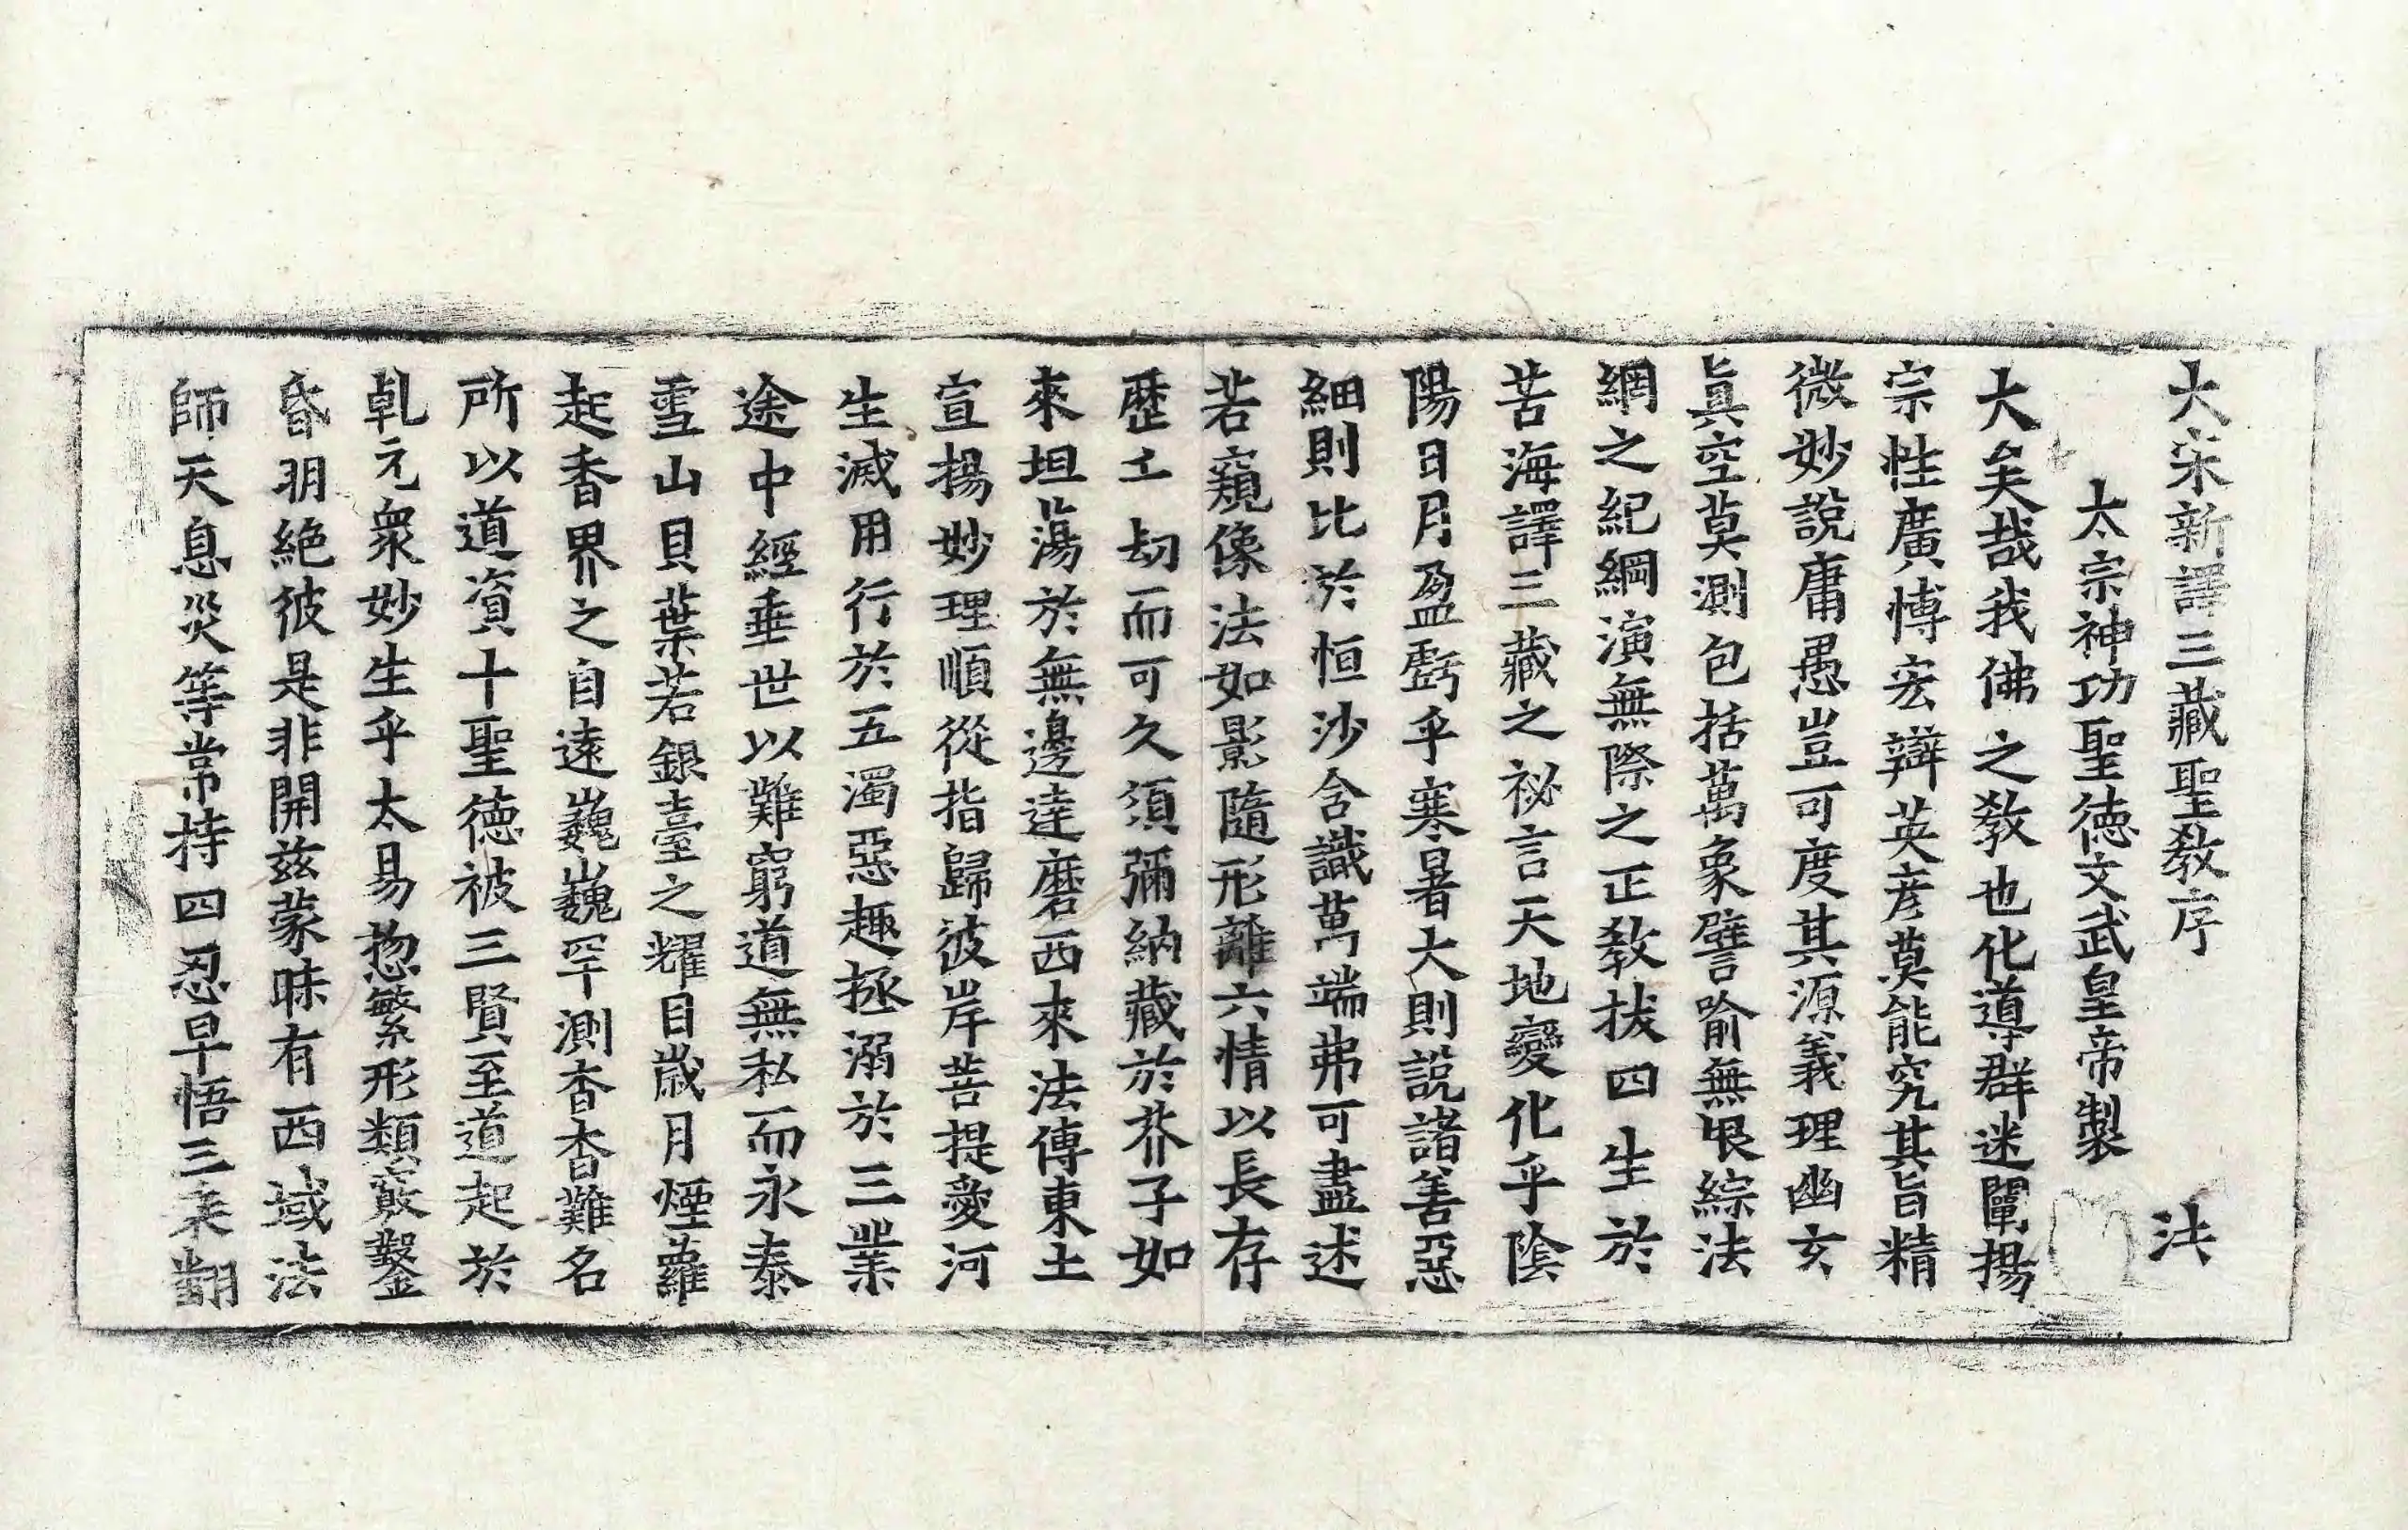 大宋新譯三藏聖教序　法
太宗神功聖德文武皇帝製
大矣哉我佛之教也化導群迷闡揚
宗性廣博宏辯英彦莫能究其旨精
微妙說庸愚豈可度其源義理幽玄
眞空莫測包括萬象譬喻無垠綜法
網之紀綱演無際之正教拔四生於
苦海譯三藏之祕言天地變化乎陰
陽日月盈虧乎寒暑大則說諸善惡
細則比於恒沙含識萬端弗可盡述
若窺像法如影隨形離六情以長存
歷千劫而可久須彌納藏於芥子如
來坦蕩於無邊達磨西來法傳東土
宣揚妙理順從指歸彼岸菩提愛河
生滅用行於五濁惡趣拯溺於三業
途中經垂世以難窮道無私而永泰
雪山貝葉若銀臺之耀目歲月煙蘿
起香界之自遠巍巍罕測杳杳難名
所以道資十聖德被三賢至道起於
乹元衆妙生乎太易惣繁形類竅鑿
昏明絶彼是非開兹蒙昧有西域法
師天息災等常持四忍早悟三乘翻